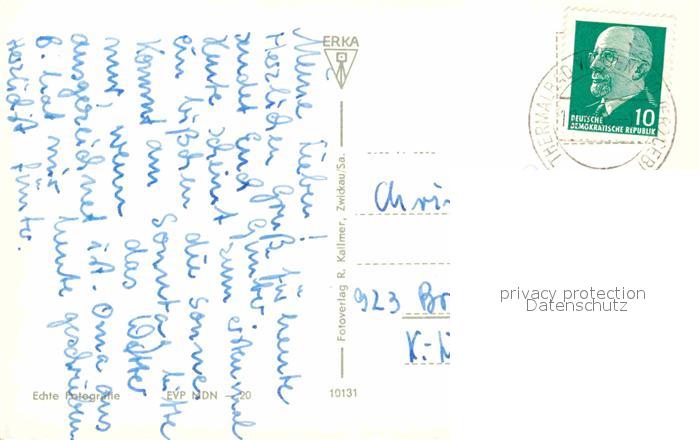 Meine Lieben!
Herzlichen Gruß für heute
sendet Euch Günter
Heute scheint zum erstenmal
ein bißchen die Sonne.
Kommt am Sonntag bitte
nur, wenn das Wetter
ausgezeichnet ist. Oma aus
B. hat mir heute geschrieben
Herzlichst
ERKA
Fotoverlag R. Kallmer, Zwickau/Sa.
Echte Fotografie EVP MDN -20 10131
THERMALBAD
DEUTSCHE
DEMOKRATISCHE REPUBLIK 10
923 Br
K.-
privacy protection
Datenschutz